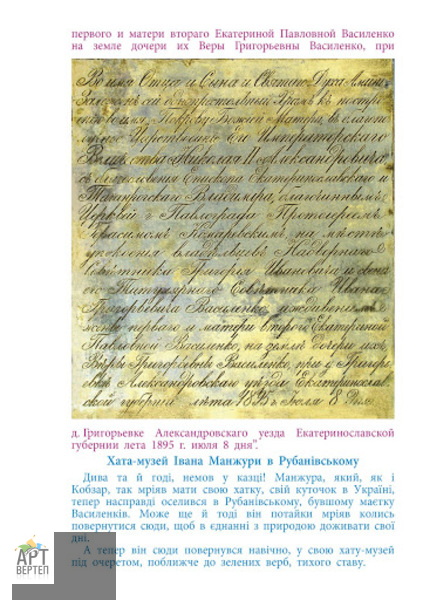 первого и матери втораго Екатериной Павловной Василенко
на земле дочери их Веры Григорьевны Василенко, при
Во имя Отца и Сына и Святаго Духа Аминь.
Заложенъ сей однопрестольный Храмъ къ постро
во имя Покрова Божіей Матери, въ благопо
лучное Царствованіе Его Императорскаго
Величества Николая II Александровича
съ благословенія Епископа Екатеринославскаго и
Таганрогскаго Владиміра, благочиннымъ
Церквей г. Павлограда Протоіереемъ
Герасимомъ Комаровскимъ, на мѣстѣ
упокоенія владѣльцевъ Надворнаго
Совѣтника Григорія Ивановича и сына
его Титулярнаго Совѣтника Ивана
Григорьевича Василенко, иждивеніемъ
перваго и матери второго Екатериной
Павловной Василенко, на землѣ дочери ихъ
Вѣры Григорьевны Василенко, при д. Григорь
евкѣ Александровскаго уѣзда Екатеринослав
ской губерніи лѣта 1895 г. Іюля 8 дня
д. Григорьевке Александровскаго уезда Екатеринославской
губернии лета 1895 г. июля 8 дня".
Хата-музей Івана Манжури в Рубанівському
Дива та й годі, немов у казці! Манжура, який, як і
Кобзар, так мріяв мати свою хатку, свій куточок в Україні,
тепер насправді оселився в Рубанівському, бувшому маєтку
Василенків. Може ще й тоді він потайки мріяв колись
повернутися сюди, щоб в єднанні з природою доживати свої
дні.
А тепер він сюди повернувся навічно, у свою хату-музей
під очеретом, поближче до зелених верб, тихого ставу.
АРТ
ВЕРТЕП